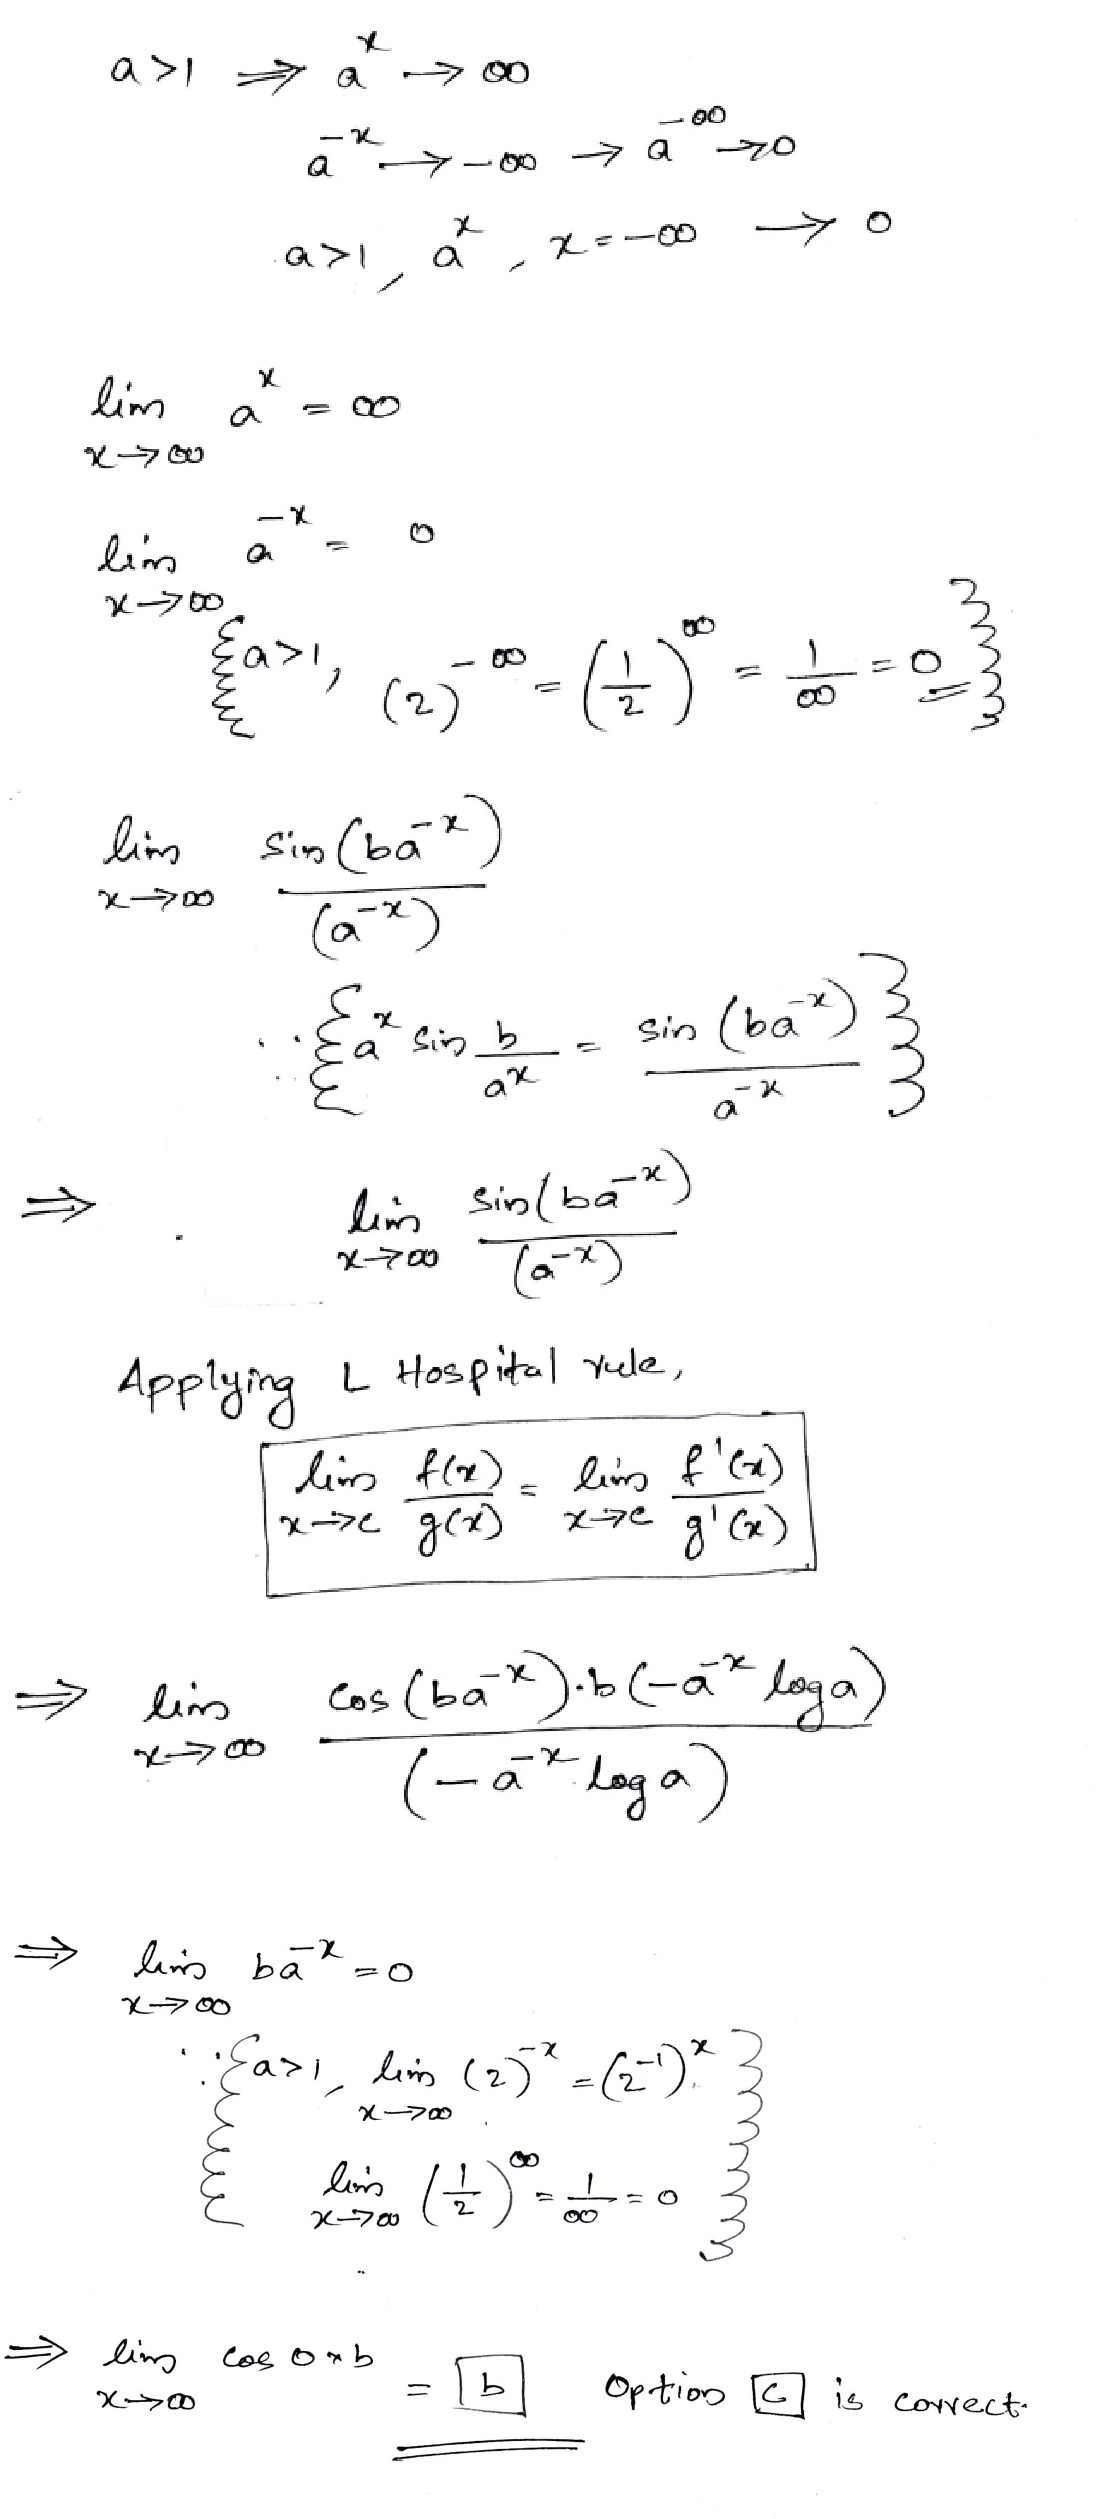 a>1 ⇒ a^x → ∞
a^-x → -∞ → a^-∞ → 0
a>1, a^x, x=-∞ → 0
lim a^x = ∞
x→∞
lim a^-x = 0
x→∞
{a>1, (2)^-∞ = (1/2)^∞ = 1/∞ = 0}
lim sin(ba^-x)/(a^-x)
x→∞
∵ {a^x sin b/a^x = sin(ba^-x)/a^-x}
⇒ lim sin(ba^-x)/(a^-x)
x→∞
Applying L Hospital rule,
lim f(x)/g(x) = lim f'(x)/g'(x)
x→c x→c
⇒ lim cos(ba^-x).b(-a^-x log a)/(-a^-x log a)
x→∞
⇒ lim ba^-x = 0
x→∞
∵ {a>1, lim (2)^-x = (2^-1)^x
x→∞
lim (1/2)^∞ = 1/∞ = 0}
x→∞
⇒ lim cos 0×b = b Option C is correct.
x→∞